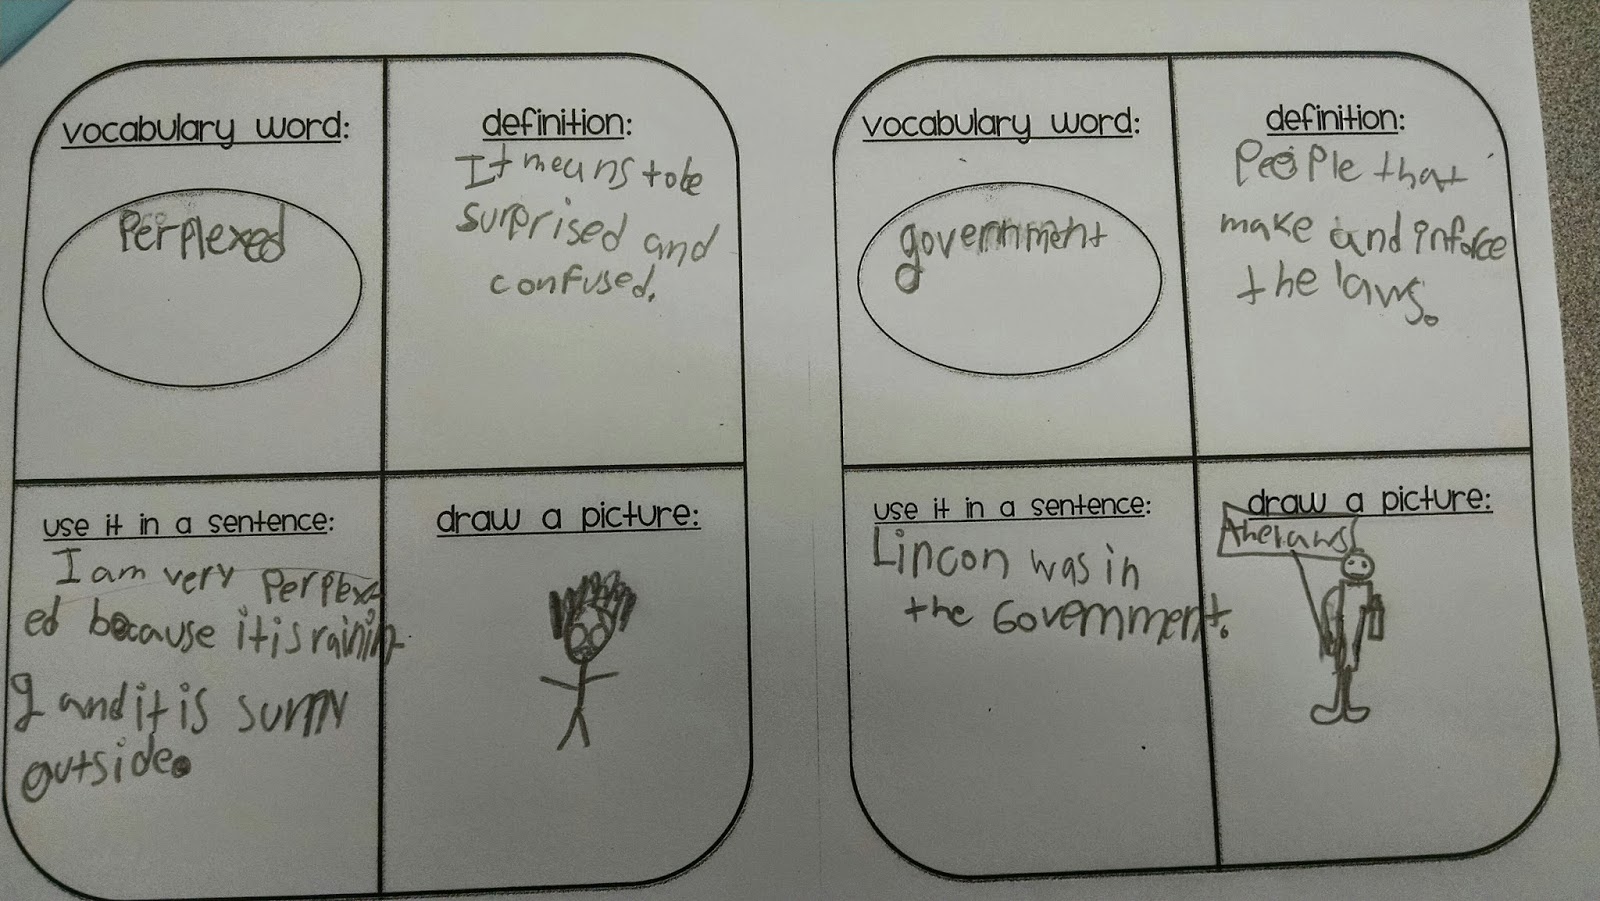 vocabulary word:
Perplexed
definition:
It means to be
surprised and
confused.
use it in a sentence:
I am very perplex
ed because it is rainin
g and it is sunny
outside.
draw a picture:
vocabulary word:
government
definition:
People that
make and inforce
the laws.
use it in a sentence:
Lincon was in
the Government.
draw a picture: